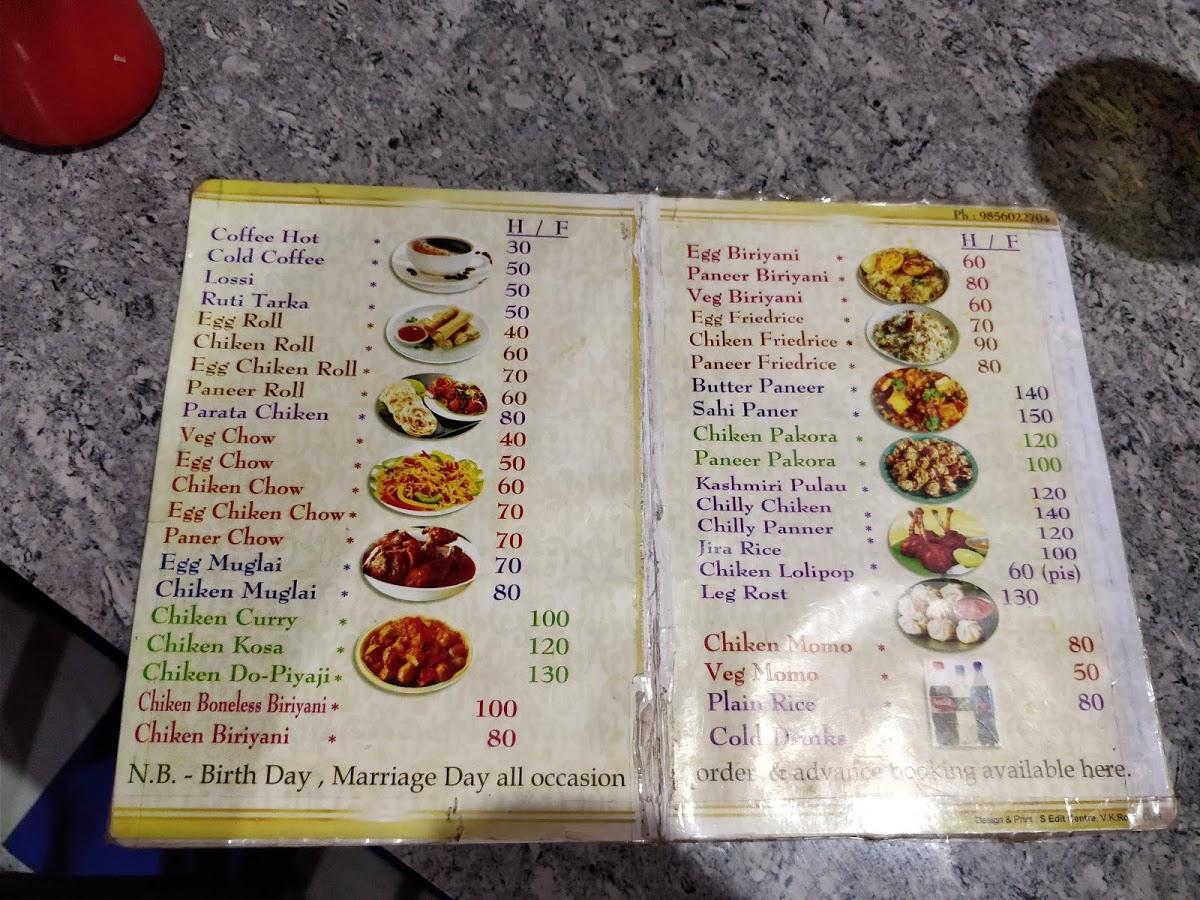 H / F
Coffee Hot * 30
Cold Coffee * 50
Lossi * 50
Ruti Tarka * 50
Egg Roll * 40
Chiken Roll * 60
Egg Chiken Roll * 70
Paneer Roll * 60
Parata Chiken * 80
Veg Chow * 40
Egg Chow * 50
Chiken Chow * 60
Egg Chiken Chow * 70
Paner Chow * 70
Egg Muglai * 70
Chiken Muglai * 80
Chiken Curry * 100
Chiken Kosa * 120
Chiken Do-Piyaji * 130
Chiken Boneless Biriyani * 100
Chiken Biriyani * 80
N.B. - Birth Day , Marriage Day all occasion
Ph : 9856022704
H / F
Egg Biriyani * 60
Paneer Biriyani * 80
Veg Biriyani * 60
Egg Friedrice * 70
Chiken Friedrice * 90
Paneer Friedrice * 80
Butter Paneer * 140
Sahi Paner * 150
Chiken Pakora * 120
Paneer Pakora * 100
Kashmiri Pulau * 120
Chilly Chiken * 140
Chilly Panner * 120
Jira Rice * 100
Chiken Lolipop * 60 (pis)
Leg Rost * 130
Chiken Momo * 80
Veg Momo * 50
Plain Rice * 80
Cold Drinks *
order & advance booking available here.
Design & Print : S Edit Centre, V.K.